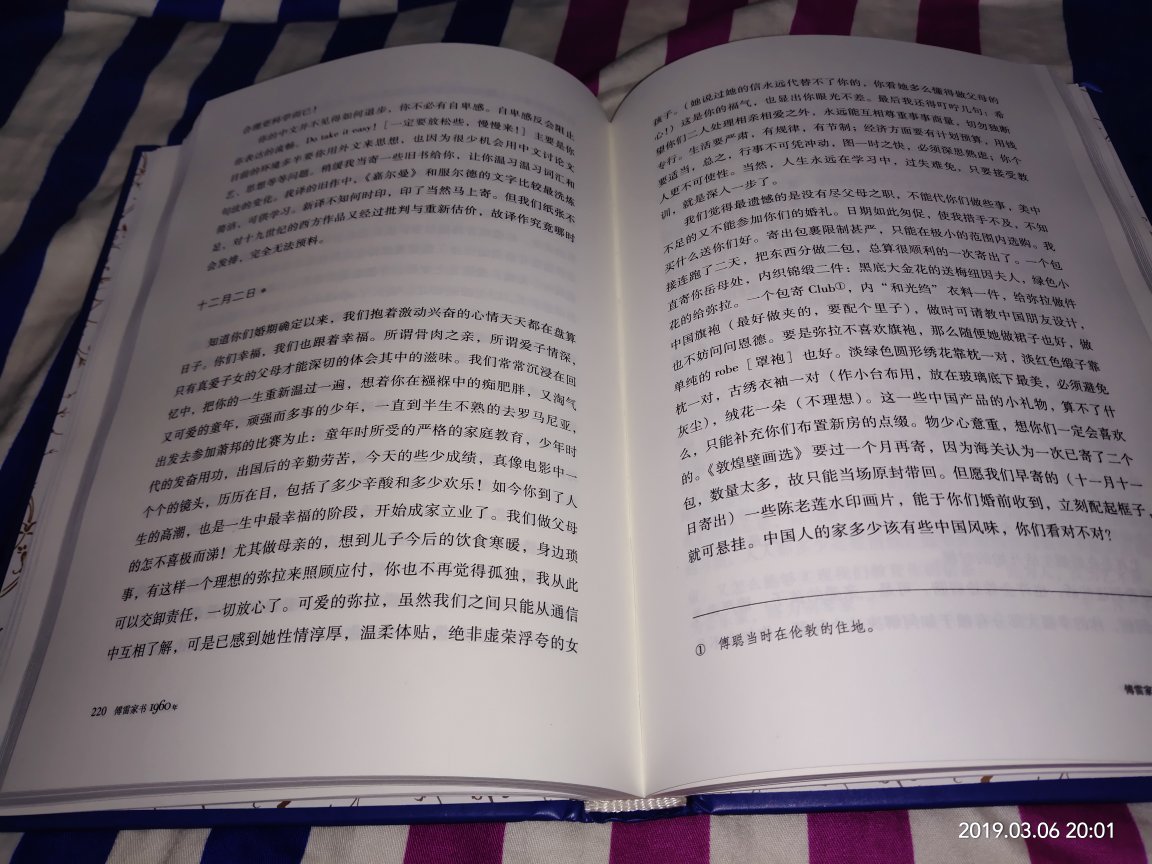 合理更科学而已！
你的中文并不见得如何退步，你不必有自卑感。自卑感反会阻止
你表达的流畅。Do take it easy!［一定要放松些，慢慢来！］主要是你
目前的环境多半要你用外文来思想，也因为很少机会用中文讨论文
艺、思想等等问题。稍缓我当寄一些旧书给你，让你温习温习词汇和
句法的变化。我译的旧作中，《嘉尔曼》和服尔德的文字比较最洗炼
简洁，可供学习。新译不知何时印，印了当然马上寄。但我们纸张不
足，对十九世纪的西方作品又经过批判与重新估价，故译作究竟哪时
会发排，完全无法预料。
十二月二日*
知道你们婚期确定以来，我们抱着激动兴奋的心情天天都在盘算
日子。你们幸福，我们也跟着幸福。所谓骨肉之亲，所谓爱子情深，
只有真爱子女的父母才能深切的体会其中的滋味。我们常常沉浸在回
忆中，把你的一生重新温过一遍，想着你在襁褓中的痴肥胖，又淘气
又可爱的童年，顽强而多事的少年，一直到半生不熟的去罗马尼亚，
出发去参加萧邦的比赛为止：童年时所受的严格的家庭教育，少年时
代的发奋用功，出国后的辛勤劳苦，今天的些少成绩，真像电影中一
个个的镜头，历历在目，包括了多少辛酸和多少欢乐！如今你到了人
生的高潮，也是一生中最幸福的阶段，开始成家立业了。我们做父母
的怎不喜极而涕！尤其做母亲的，想到儿子今后的饮食寒暖，身边琐
事，有这样一个理想的弥拉来照顾应付，你也不再觉得孤独，我从此
可以交卸责任，一切放心了。可爱的弥拉，虽然我们之间只能从通信
中互相了解，可是已感到她性情淳厚，温柔体贴，绝非虚荣浮夸的女
220 傅雷家书 1960年
孩子。（她说过她的信永远代替不了你的，你看她多么懂得做父母的
心！）这是你的福气，也显出你眼光不差。最后我还得叮咛几句：希
望你们二人处理相亲相爱之外，永远能互相尊重事事商量，切勿独断
专行。生活要严肃，有规律，有节制；经济方面要有计划预算，用钱
要适当，总之，行事不可凭冲动，图一时之快，必须深思熟虑；你个
人更不可使性。当然，人生永远在学习中，过失难免，只要接受教
训，就是深入一步了。
我们觉得最遗憾的是没有尽父母之职，不能代你们做些事，美中
不足的又不能参加你们的婚礼。日期如此匆促，使我措手不及，不知
买什么送你们好。寄出包裹限制甚严，只能在极小的范围内选购。我
接连跑了二天，把东西分做二包，总算很顺利的一次寄出了。一个包
直寄你岳母处，内织锦缎二件：黑底大金花的送梅纽因夫人，绿色小
花的给弥拉。一个包寄 Club①，内“和光绉”衣料一件，给弥拉做件
中国旗袍（最好做夹的，要配个里子），做时可请教中国朋友设计，
也不妨问问恩德。要是弥拉不喜欢旗袍，那么随便她做裙子也好，做
单纯的 robe［罩袍］也好。淡绿色圆形绣花靠枕一对，淡红色缎子靠
枕一对，古绣衣袖一对（作小台布用，放在玻璃底下最美，必须避免
灰尘），绒花一朵（不理想）。这一些中国产品的小礼物，算不了什
么，只能补充你们布置新房的点缀。物少心意重，想你们一定会喜欢
的。《敦煌壁画选》要过一个月再寄，因为海关认为一次已寄了二个
包，数量太多，故只能当场原封带回。但愿我们早寄的（十一月十一
日寄出）一些陈老莲水印画片，能于你们婚前收到，立刻配起框子，
就可悬挂。中国人的家多少该有些中国风味，你们看对不对？
① 傅聪当时在伦敦的住地。
傅雷家
2019.03.06 20:01